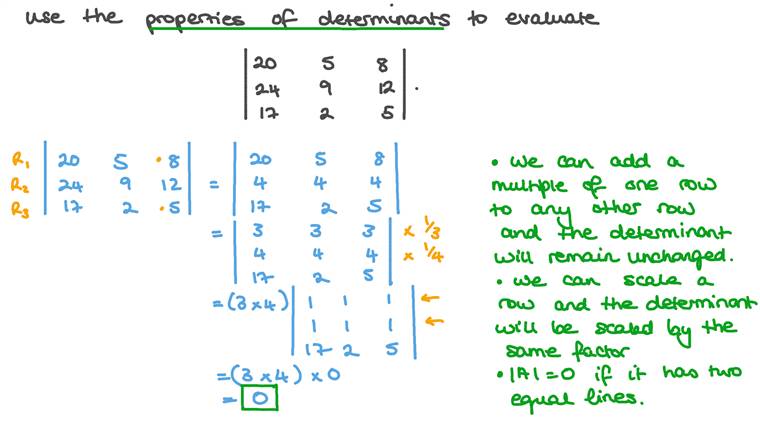 use the properties of determinants to evaluate
| 20 5 8 |
| 24 9 12 | .
| 17 2 5 |
R₁ | 20 5 · 8 | | 20 5 8 |
R₂ | 24 9 12 | = | 4 4 4 |
R₃ | 17 2 · 5 | | 17 2 5 |
= | 3 3 3 | × 1/3
| 4 4 4 | × 1/4
| 17 2 5 |
= (3 × 4) | 1 1 1 | ←
| 1 1 1 | ←
| 17 2 5 |
= (3 × 4) × 0
= 0
• we can add a
multiple of one row
to any other row
and the determinant
will remain unchanged.
• we can scale a
row and the determinant
will be scaled by the
same factor
• |A| = 0 if it has two
equal lines.